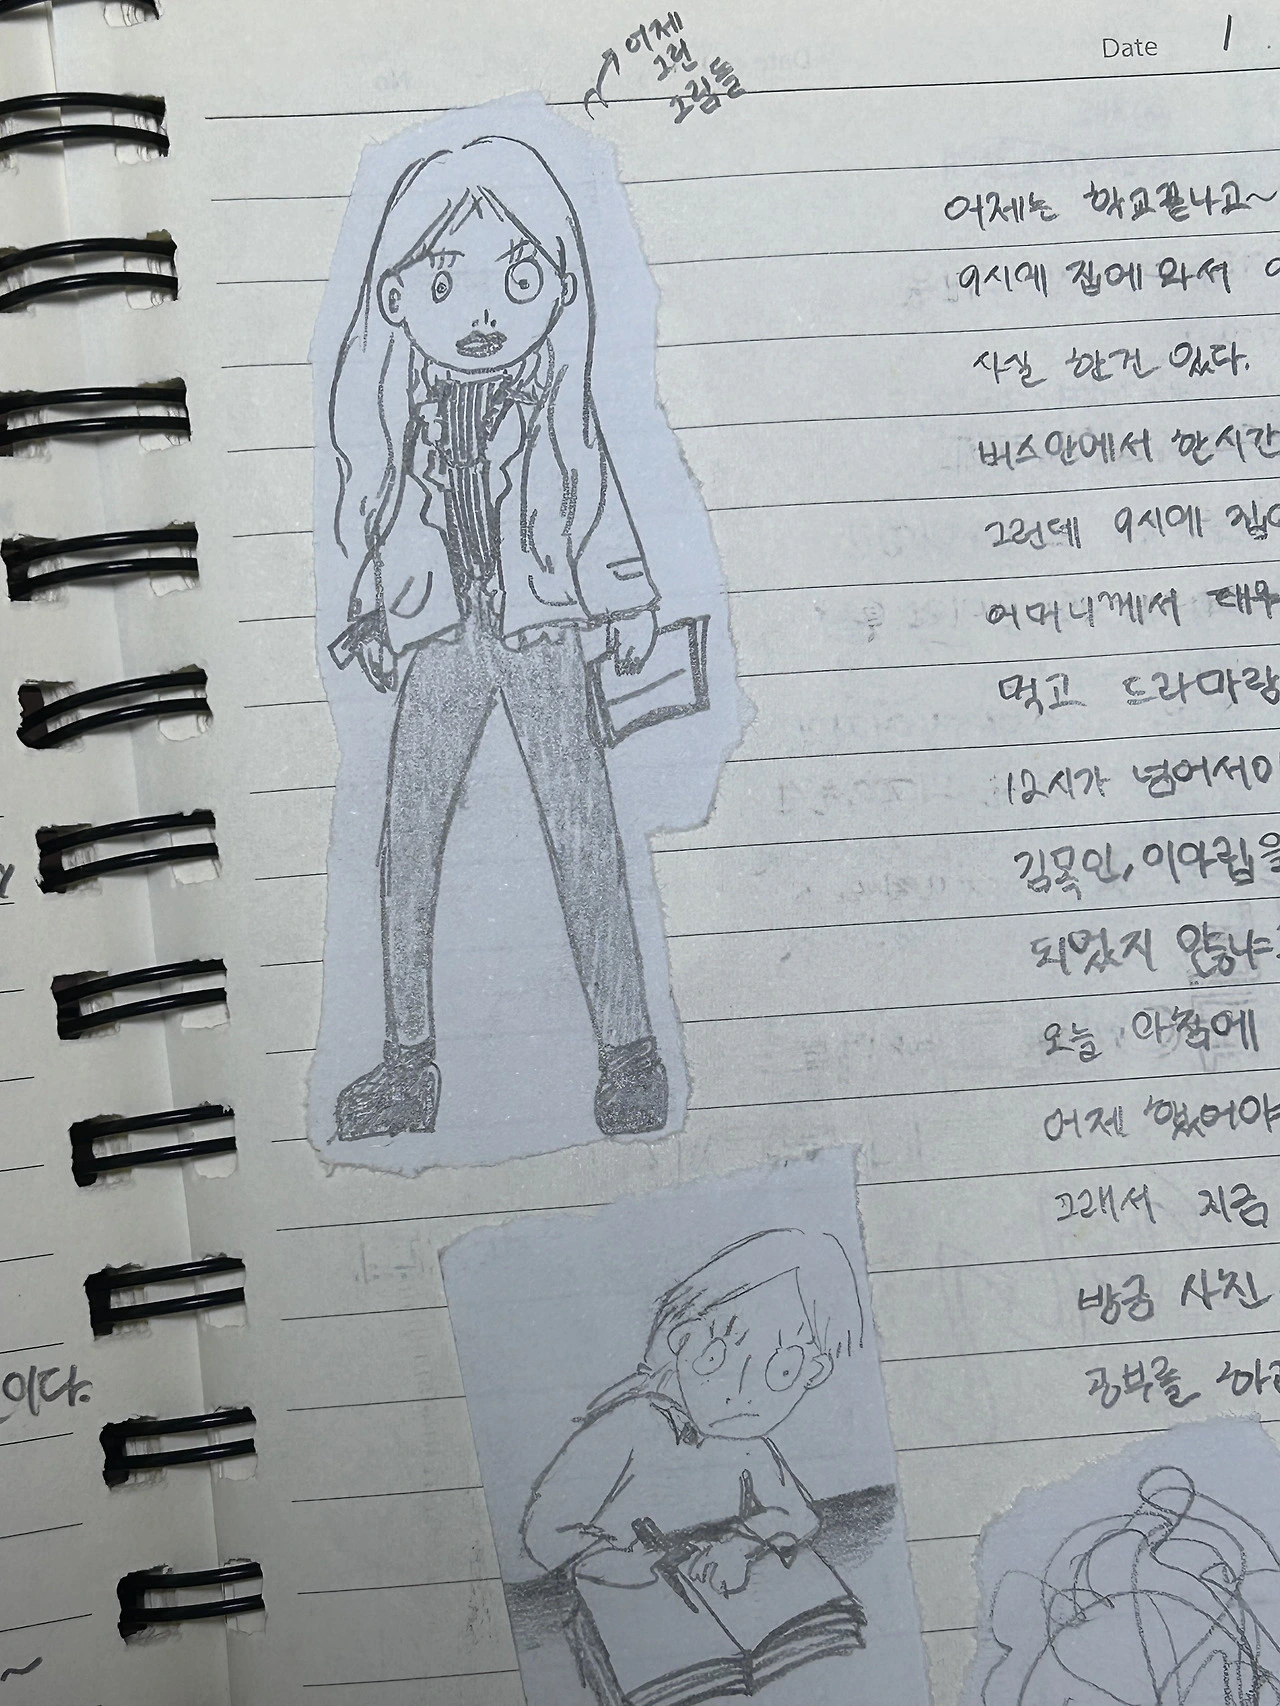 어제
그린
그림들
Date 1
어제는 학교끝나고~
9시에 집에 와서
사실 한건 있다.
버스안에서 한시간
그런데 9시에 집에
어머니께서
먹고 드라마랑
12시가 넘어서
김목인, 이아립을
되었지 않나
오늘 아침에
어제 했어야
그래서 지금
방궁 사진
공부를 하
이다.
~